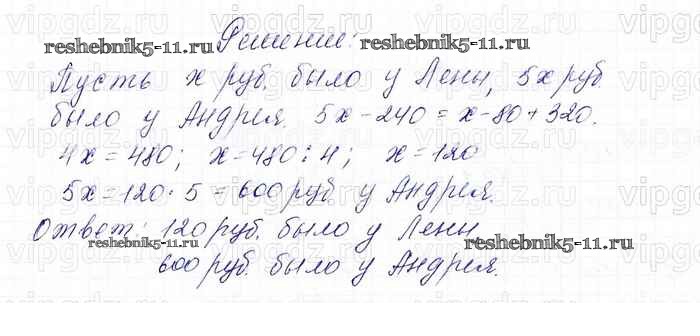 Решение:
reshebnik5-11.ru reshebnik5-11.ru
Пусть х руб. было у Лены, 5х руб.
было у Андрея. 5х - 240 = х - 80 + 320.
4х = 480; х = 480 : 4; х = 120
5х = 120 · 5 = 600 руб у Андрея.
Ответ: 120 руб. было у Лены
reshebnik5-11.ru reshebnik5-11.ru
600 руб. было у Андрея.
vipgdz.ru